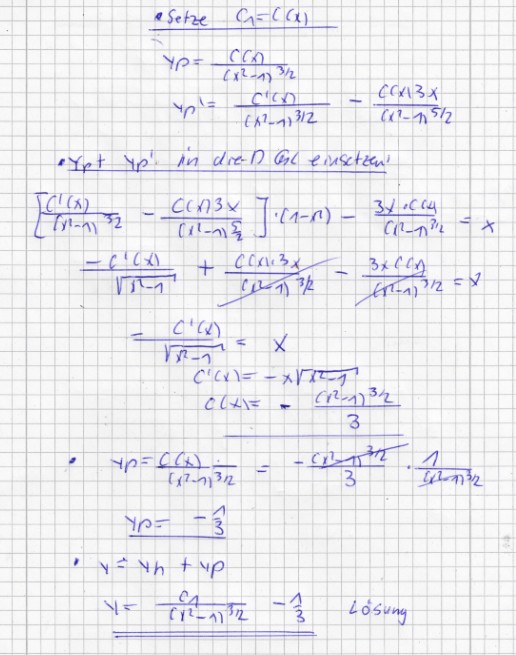 • Setze C₁ = C(x)
yp = C(x) / (x²-1)^3/2
yp' = C'(x) / (x²-1)^3/2 - C(x)3x / (x²-1)^5/2
• yp + yp' in die D Gl einsetzen:
[C'(x) / (x²-1)^3/2 - C(x)3x / (x²-1)^5/2] · (1-x²) - 3x·C(x) / (x²-1)^3/2 = x
-C'(x) / √x²-1 + C(x)·3x / (x²-1)^3/2 - 3x C(x) / (x²-1)^3/2 = x
- C'(x) / √x²-1 = x
C'(x) = -x√x²-1
C(x) = - (x²-1)^3/2 / 3
• yp = C(x) / (x²-1)^3/2 = - (x²-1)^3/2 / 3 · 1 / (x²-1)^3/2
yp = - 1/3
• y = yh + yp
y = C₁ / (x²-1)^3/2 - 1/3 Lösung